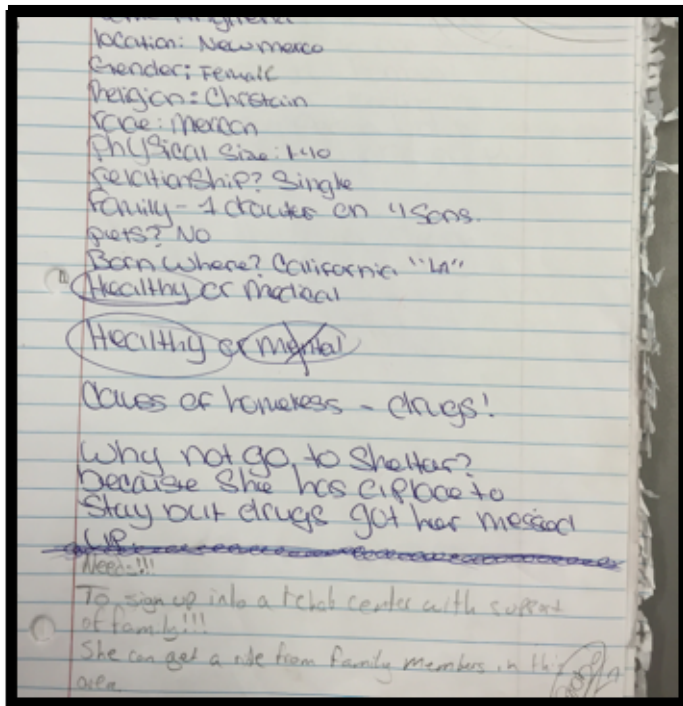 location: Newmexco
Gender: Female
Religion: Chrstain
race: mexcan
Physical Size: 140
relationship? Single
Family - 1 on 4 Sons.
pets? No
Born where? California "LA"
Healthy or medical
Healthy or mental
Caues of homeless - drugs!
Why not go to Sheltar?
because She has a place to
Stay but drugs got her messed
up.
Need-!!!
To sign up into a rehab center with support
of family!!!
She can get a ride from family members in this
area